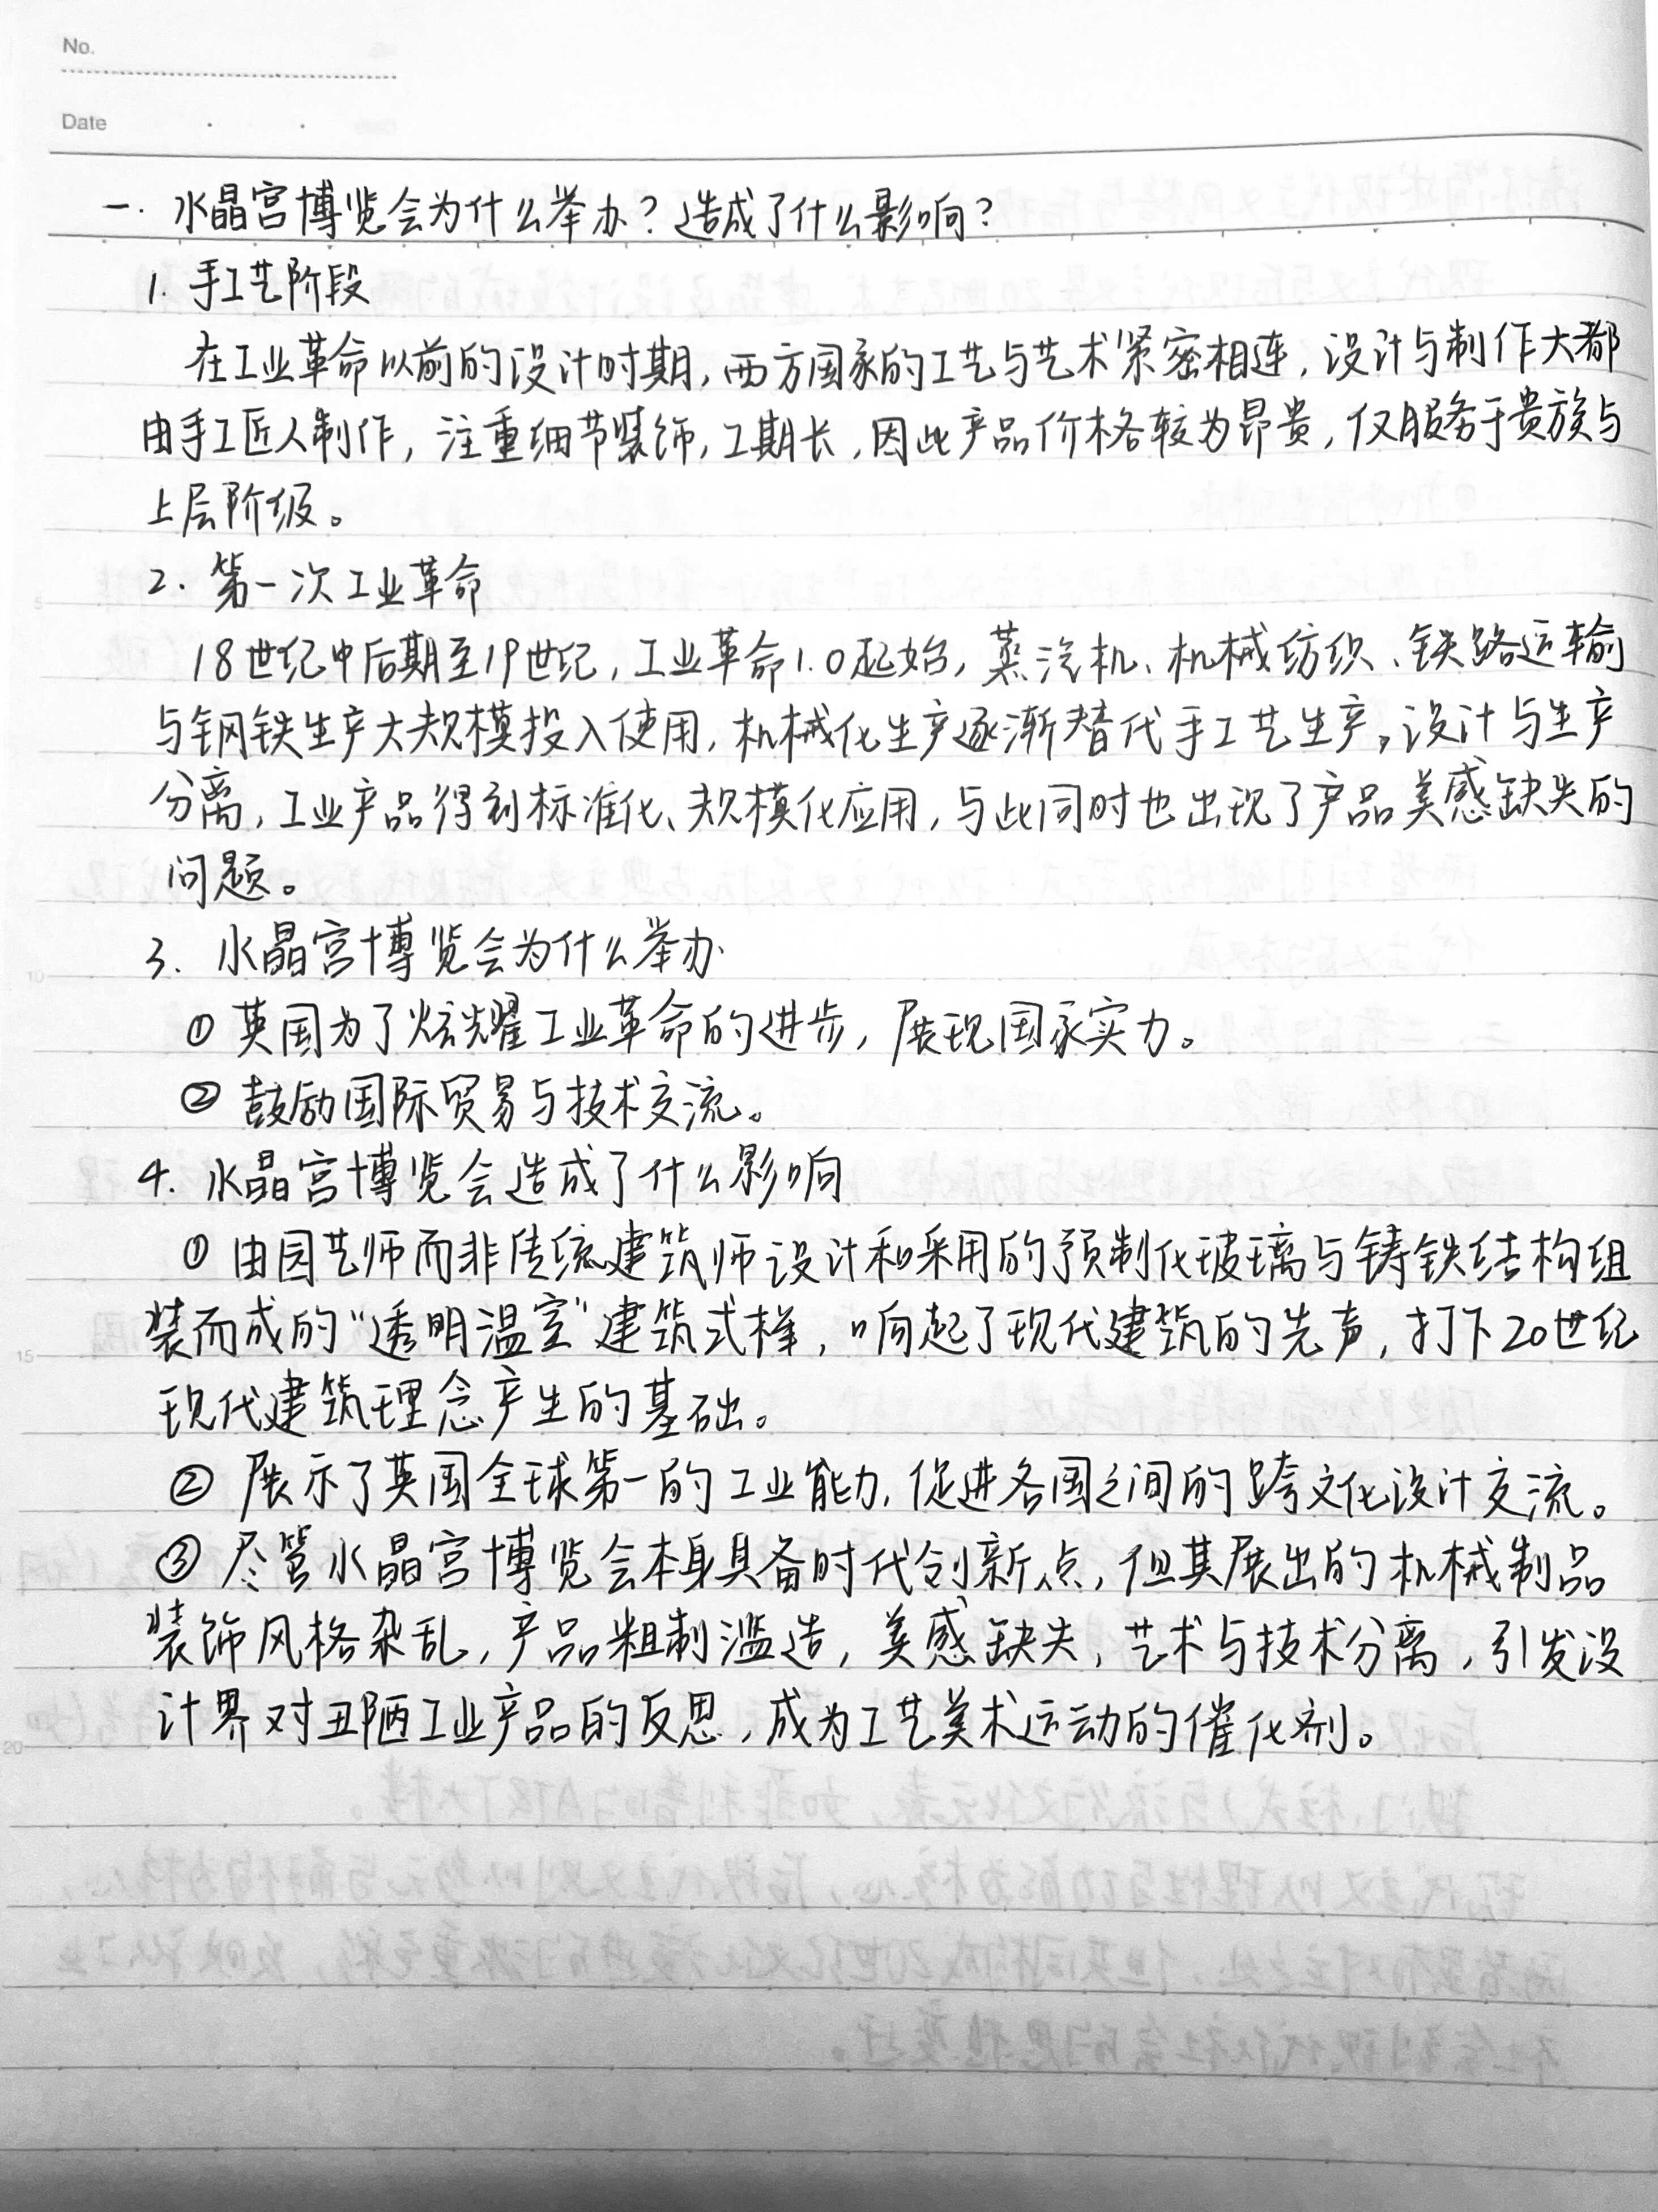 No.
Date
一. 水晶宫博览会为什么举办？造成了什么影响？
1. 手工艺阶段
在工业革命以前的设计时期，西方国家的工艺与艺术紧密相连，设计与制作大都
由手工匠人制作，注重细节装饰，工期长，因此产品价格较为昂贵，仅服务于贵族与
上层阶级。
2. 第一次工业革命
18世纪中后期至19世纪，工业革命1.0起始，蒸汽机、机械纺织、铁路运输
与钢铁生产大规模投入使用，机械化生产逐渐替代手工艺生产，设计与生产
分离，工业产品得到标准化、规模化应用，与此同时也出现了产品美感缺失的
问题。
3. 水晶宫博览会为什么举办
① 英国为了炫耀工业革命的进步，展现国家实力。
② 鼓励国际贸易与技术交流。
4. 水晶宫博览会造成了什么影响
① 由园艺师而非传统建筑师设计和采用的预制化玻璃与铸铁结构组
装而成的“透明温室”建筑式样，响起了现代建筑的先声，打下20世纪
现代建筑理念产生的基础。
② 展示了英国全球第一的工业能力，促进各国之间的跨文化设计交流。
③ 尽管水晶宫博览会本身具备时代创新点，但其展出的机械制品
装饰风格杂乱，产品粗制滥造，美感缺失，艺术与技术分离，引发设
计界对丑陋工业产品的反思，成为工艺美术运动的催化剂。
5
10
15
20